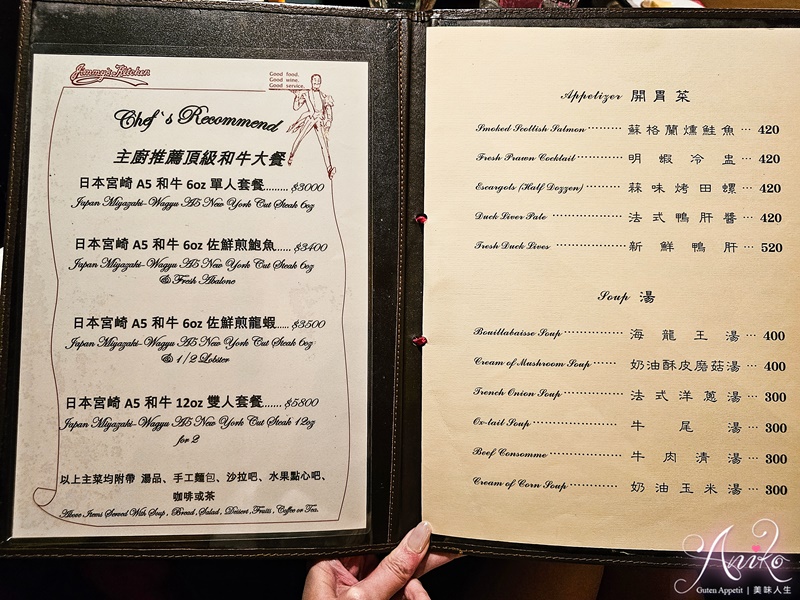 Jimmy's Kitchen
Good food.
Good wine.
Good service.
Chef's Recommend
主廚推薦頂級和牛大餐
日本宮崎 A5 和牛 6oz 單人套餐......... $3000
Japan Miyazaki-Wagyu A5 New York Cut Steak 6oz
日本宮崎 A5 和牛 6oz 佐鮮煎鮑魚..... $3400
Japan Miyazaki-Wagyu A5 New York Cut Steak 6oz
& Fresh Abalone
日本宮崎 A5 和牛 6oz 佐鮮煎龍蝦...... $3500
Japan Miyazaki-Wagyu A5 New York Cut Steak 6oz
& 1/2 Lobster
日本宮崎 A5 和牛 12oz 雙人套餐....... $5800
Japan Miyazaki-Wagyu A5 New York Cut Steak 12oz
for 2
以上主菜均附帶 湯品、手工麵包、沙拉吧、水果點心吧、
咖啡或茶
Above Items Served With Soup , Bread , Salad , Dessert , Fruits , Coffee or Tea.
Appetizer 開胃菜
Smoked Scottish Salmon ········ 蘇格蘭燻鮭魚 ··· 420
Fresh Prawn Cocktail ········ 明蝦冷盅 ··· 420
Escargots (Half Dozzen) ········ 蒜味烤田螺 ··· 420
Duck Liver Pate ········ 法式鴨肝醬 ··· 420
Fresh Duck Lives ········ 新鮮鴨肝 ··· 520
Soup 湯
Bouillabaisse Soup ········ 海龍王湯 ··· 400
Cream of Mushroom Soup ····· 奶油酥皮磨菇湯 ··· 400
Trench Onion Soup ········ 法式洋蔥湯 ··· 300
Ox-tail Soup ········ 牛尾湯 ··· 300
Beef Consomme ········ 牛肉清湯 ··· 300
Cream of Corn Soup ········ 奶油玉米湯 ··· 300
Aniko
Guten Appetit | 美味人生